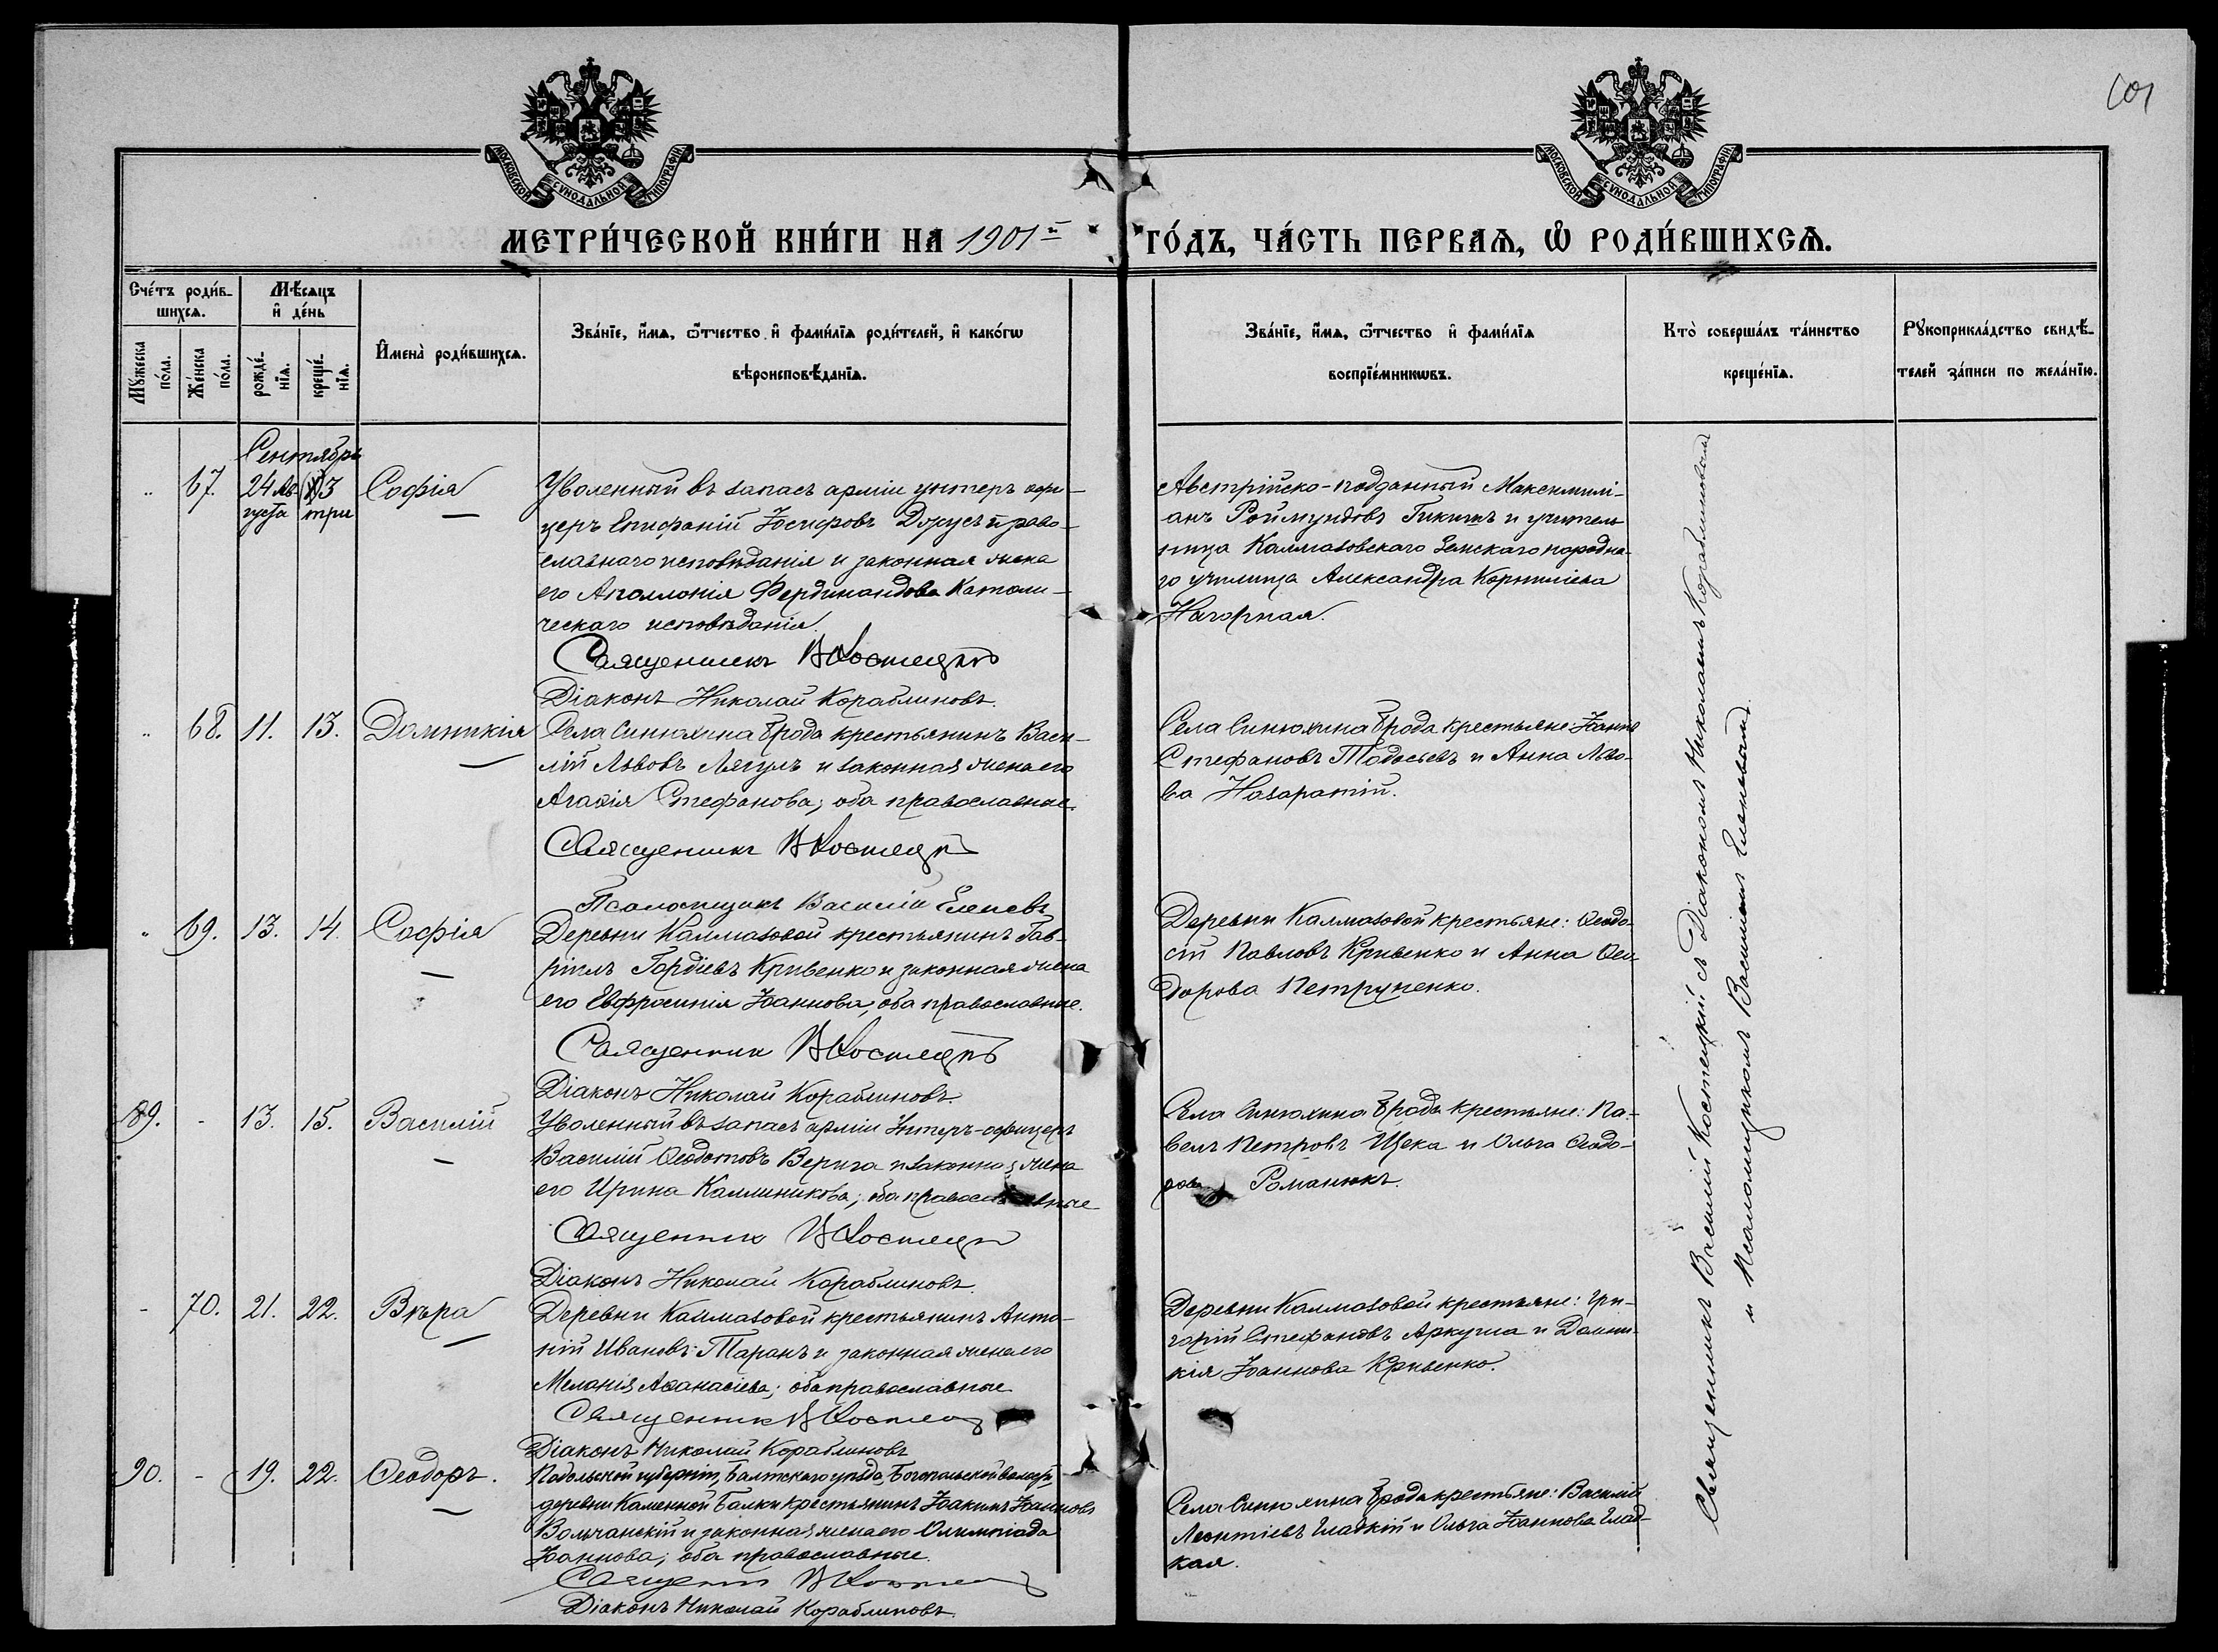 101
МОСКОВСКОЙ СУНОДАЛЬНОЙ ТИПОГРАФІИ
МОСКОВСКОЙ СУНОДАЛЬНОЙ ТИПОГРАФІИ
МЕТРИ́ЧЕСКОЙ КНИ́ГИ НА 1901й ГО́ДЪ, ЧА́СТЬ ПЕРВАѦ, Ѡ҆ РОДИ́ВШИХСѦ.
Сче́тъ роди́в-
шихсѧ.
Мѣ́сѧцъ
и҆ де́нь
Мꙋ́жеска
по́ла.
Же́нска
по́ла.
рожде́-
нїѧ.
креще́-
нїѧ.
И҆мена̀ роди́вшихсѧ.
Зва́нїе, и҆́мѧ, ѻ҆́тчество и҆ фамѝлїѧ роди́телей, и҆ како́гѡ
вѣроисповѣ́данїѧ.
Зва́нїе, и҆́мѧ, ѻ҆́тчество и҆ фами́лїѧ
воспрїе́мникѡвъ.
Кто̀ соверша́лъ та́инство
креще́нїѧ.
Рꙋкоприкла́дство свидѣ́-
телей за́писи по жела́нїю.
Сентябрь
" 67. 24 Ав- 3 Софія
густа три
Уволенный въ запасъ арміи унтеръ офи-
церъ Епифаній Іосифовъ Дорусъ право-
славнаго исповѣданія и законная жена
его Аполлонія Фердинандова Католи-
ческаго исповѣданія.
Священникъ В Костецкій
Діаконъ Николай Кораблиновъ.
Австрійско-подданный Максимилі-
анъ Роймундовъ Гикишъ и учитель
ница Калмазовскаго Земскаго народна-
го училища Александра Корниліева
Нагорная.
" 68. 11. 13. Домникія
Села Синюхина Брода крестьянинъ Васи-
лій Львовъ Лягулъ и законная жена его
Агафія Стефанова; оба православные.
Священникъ В Костецкій
Псаломщикъ Василій Еленевъ
Села Синюхина Брода крестьяне: Іоаннъ
Стефановъ Тодосьевъ и Анна Льво-
ва Назаратій.
" 69. 13. 14. Софія
Деревни Калмазовой крестьянинъ Гав-
ріилъ Гордіевъ Кривенко и законная жена
его Евфросинія Іоаннова; оба православные.
Священникъ В Костецкій
Діаконъ Николай Кораблиновъ.
Деревни Калмазовой крестьяне: Ѳеодо-
сій Павловъ Кривенко и Анна Ѳео
дорова Петруненко.
89. - 13. 15. Василій
Уволенный въ запасъ арміи Унтеръ-офицеръ
Василій Ѳеодотовъ Верига и законная жена
его Ирина Каллиникова; оба православные
Священникъ В Костецкій
Діаконъ Николай Кораблиновъ.
Села Синюхина Брода крестьяне: Па-
велъ Петровъ Щека и Ольга Ѳеодо-
рова Романюкъ.
- 70. 21. 22. Вѣра
Деревни Калмазовой крестьянинъ Анто-
ній Ивановъ Таранъ и законная жена его
Меланія Аѳанасіева; оба православные
Священникъ В Костецкій
Діаконъ Николай Кораблиновъ
Деревни Калмазовой крестьяне: Гри-
горій Стефановъ Аркуша и Домни-
кія Іоаннова Кривенко.
90. - 19. 22. Ѳеодоръ.
Подольской губерніи, Балтскаго уѣзда, Богопольской волости,
деревни Каменной Балки крестьянинъ Іоакимъ Іоанновъ
Волчанскій и законная жена его Олимпіада
Іоаннова; оба православные.
Священникъ В Костецкій
Діаконъ Николай Кораблиновъ.
Села Синюхина Брода крестьяне: Василій
Леонтіевъ Гладкій и Ольга Іоаннова Глад-
кая.
Священникъ Василій Костецкій съ Діакономъ Николаемъ Кораблиновымъ
и Псаломщикомъ Василіемъ Еленевымъ.